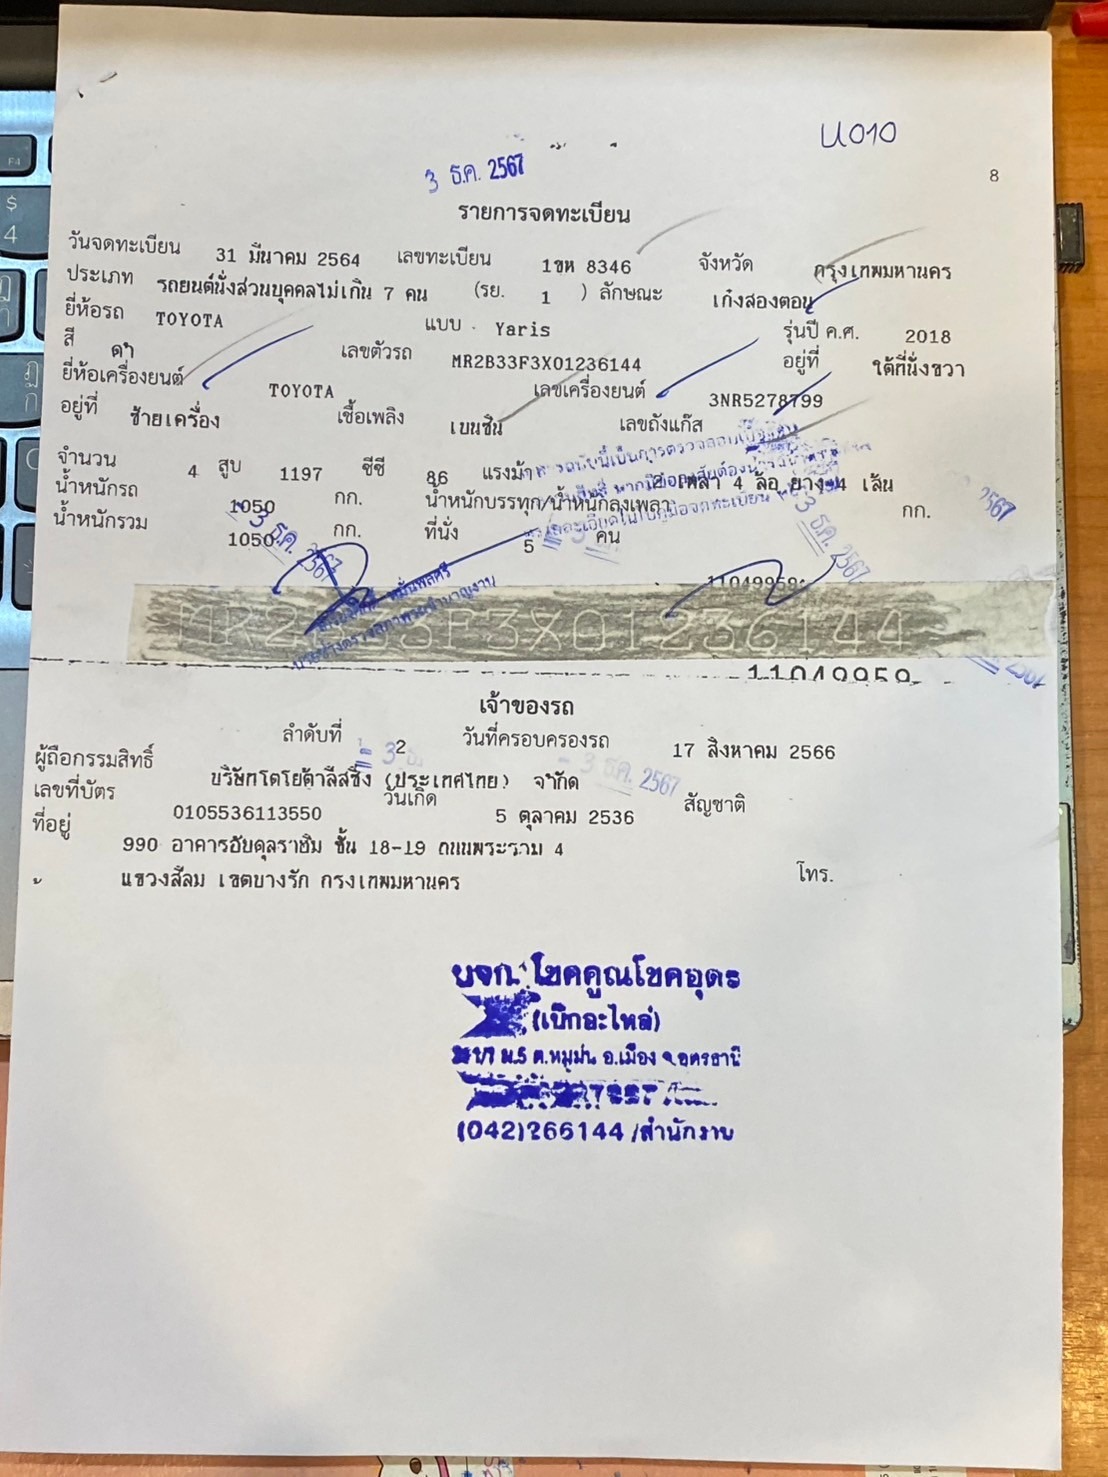 U010
3 ธ.ค. 2567
8
รายการจดทะเบียน
วันจดทะเบียน 31 มีนาคม 2564 เลขทะเบียน 1ขห 8346 จังหวัด กรุงเทพมหานคร
ประเภท รถยนต์นั่งส่วนบุคคลไม่เกิน 7 คน (รย. 1 ) ลักษณะ เก๋งสองตอน
ยี่ห้อรถ TOYOTA แบบ Yaris รุ่นปี ค.ศ. 2018
สี ดำ เลขตัวรถ MR2B33F3X01236144 อยู่ที่ ใต้ที่นั่งขวา
ยี่ห้อเครื่องยนต์ TOYOTA เลขเครื่องยนต์ 3NR5278799
อยู่ที่ ซ้ายเครื่อง เชื้อเพลิง เบนซิน เลขถังแก๊ส
จำนวน 4 สูบ 1197 ซีซี 86 แรงม้า 2 เพลา 4 ล้อ ยาง 4 เส้น
น้ำหนักรถ 1050 กก. น้ำหนักบรรทุก/น้ำหนักลงเพลา กก.
น้ำหนักรวม 1050 กก. ที่นั่ง 5 คน
3 ธ.ค. 2567
3 ธ.ค. 2567
2567
11049959
MR2B33F3X01236144
11049959
เจ้าของรถ
ลำดับที่ 2 วันที่ครอบครองรถ 17 สิงหาคม 2566
ผู้ถือกรรมสิทธิ์ บริษัทโตโยต้าลีสซิ่ง (ประเทศไทย) จำกัด
- 3 ธ.ค. 2567
เลขที่บัตร 0105536113550 วันเกิด 5 ตุลาคม 2536 สัญชาติ
ที่อยู่ 990 อาคารอับดุลราฮิม ชั้น 18-19 ถนนพระราม 4
แขวงสีลม เขตบางรัก กรุงเทพมหานคร โทร.
บจก. โชคคูณโชคอุดร
(เบิกอะไหล่)
ม.5 ต.หมูม่น อ.เมือง จ.อุดรธานี
(042)266144 /สำนักงาน